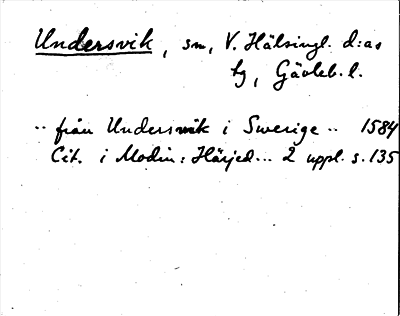 Undersvik, sn, V. Hälsingl. d:as
tg, Gävleb. l.
.. från Undersvik i Swerige .. 1584
Cit. i Modin: Härjed... 2 uppl. s. 135